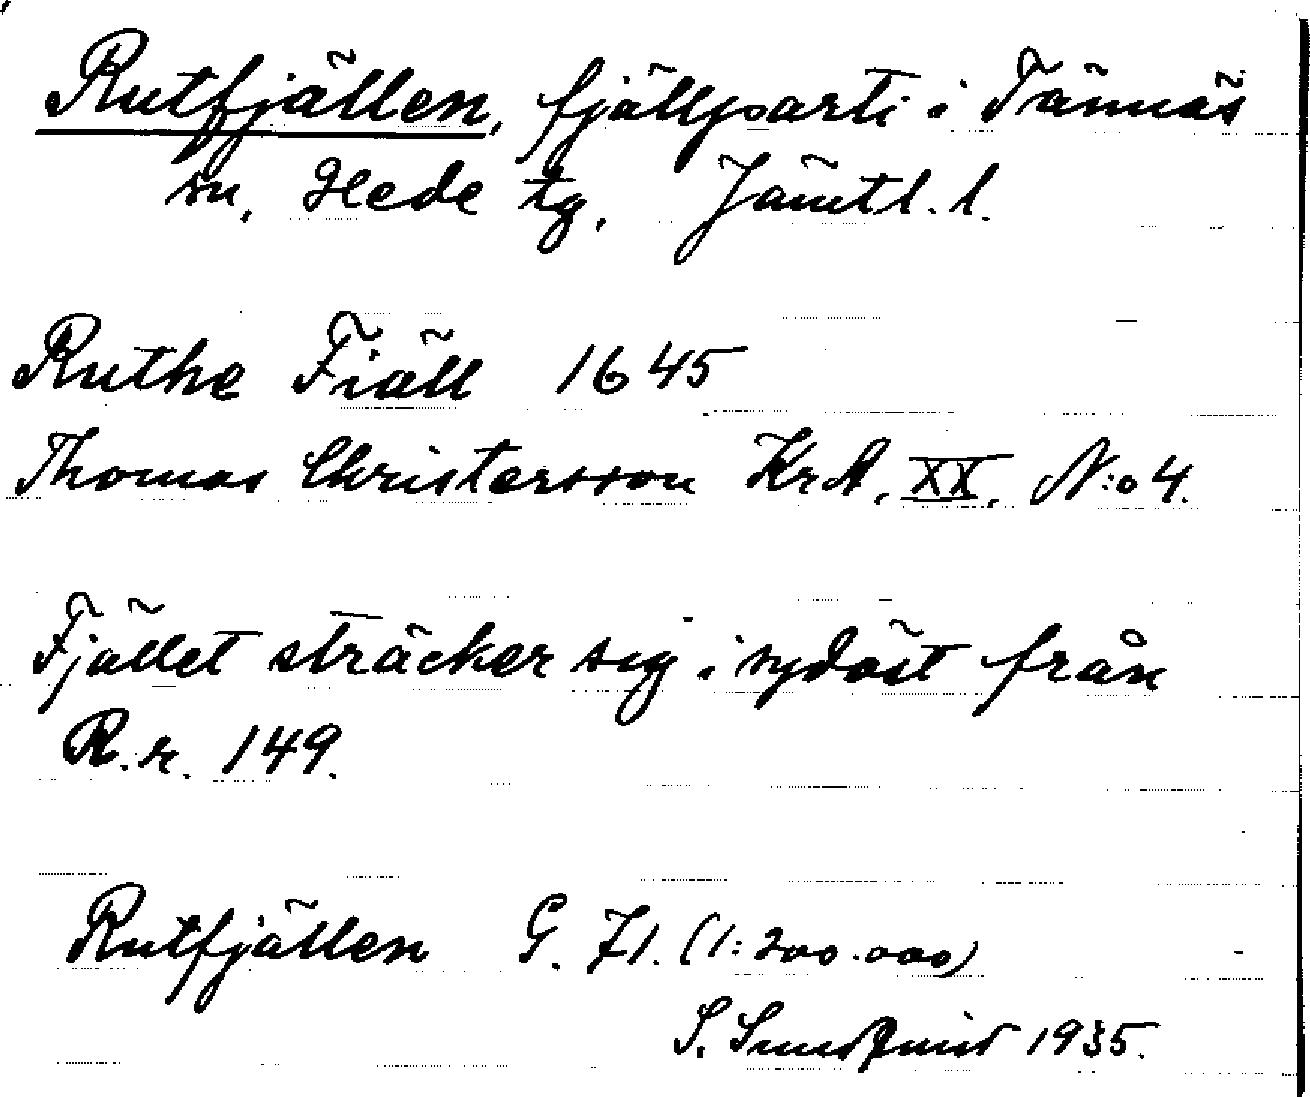 Rutfjällen, fjällparti i Tännäs
sn, Hede tg, Jämtl. l.
Ruthe Fiäll 1645
Thomas Christersson KrA, XX, N:o 4.
Fjället sträcker sig i sydöst från
R.r. 149.
Rutfjällen G. 71. (1:200.000)
S. Sundquist 1935.